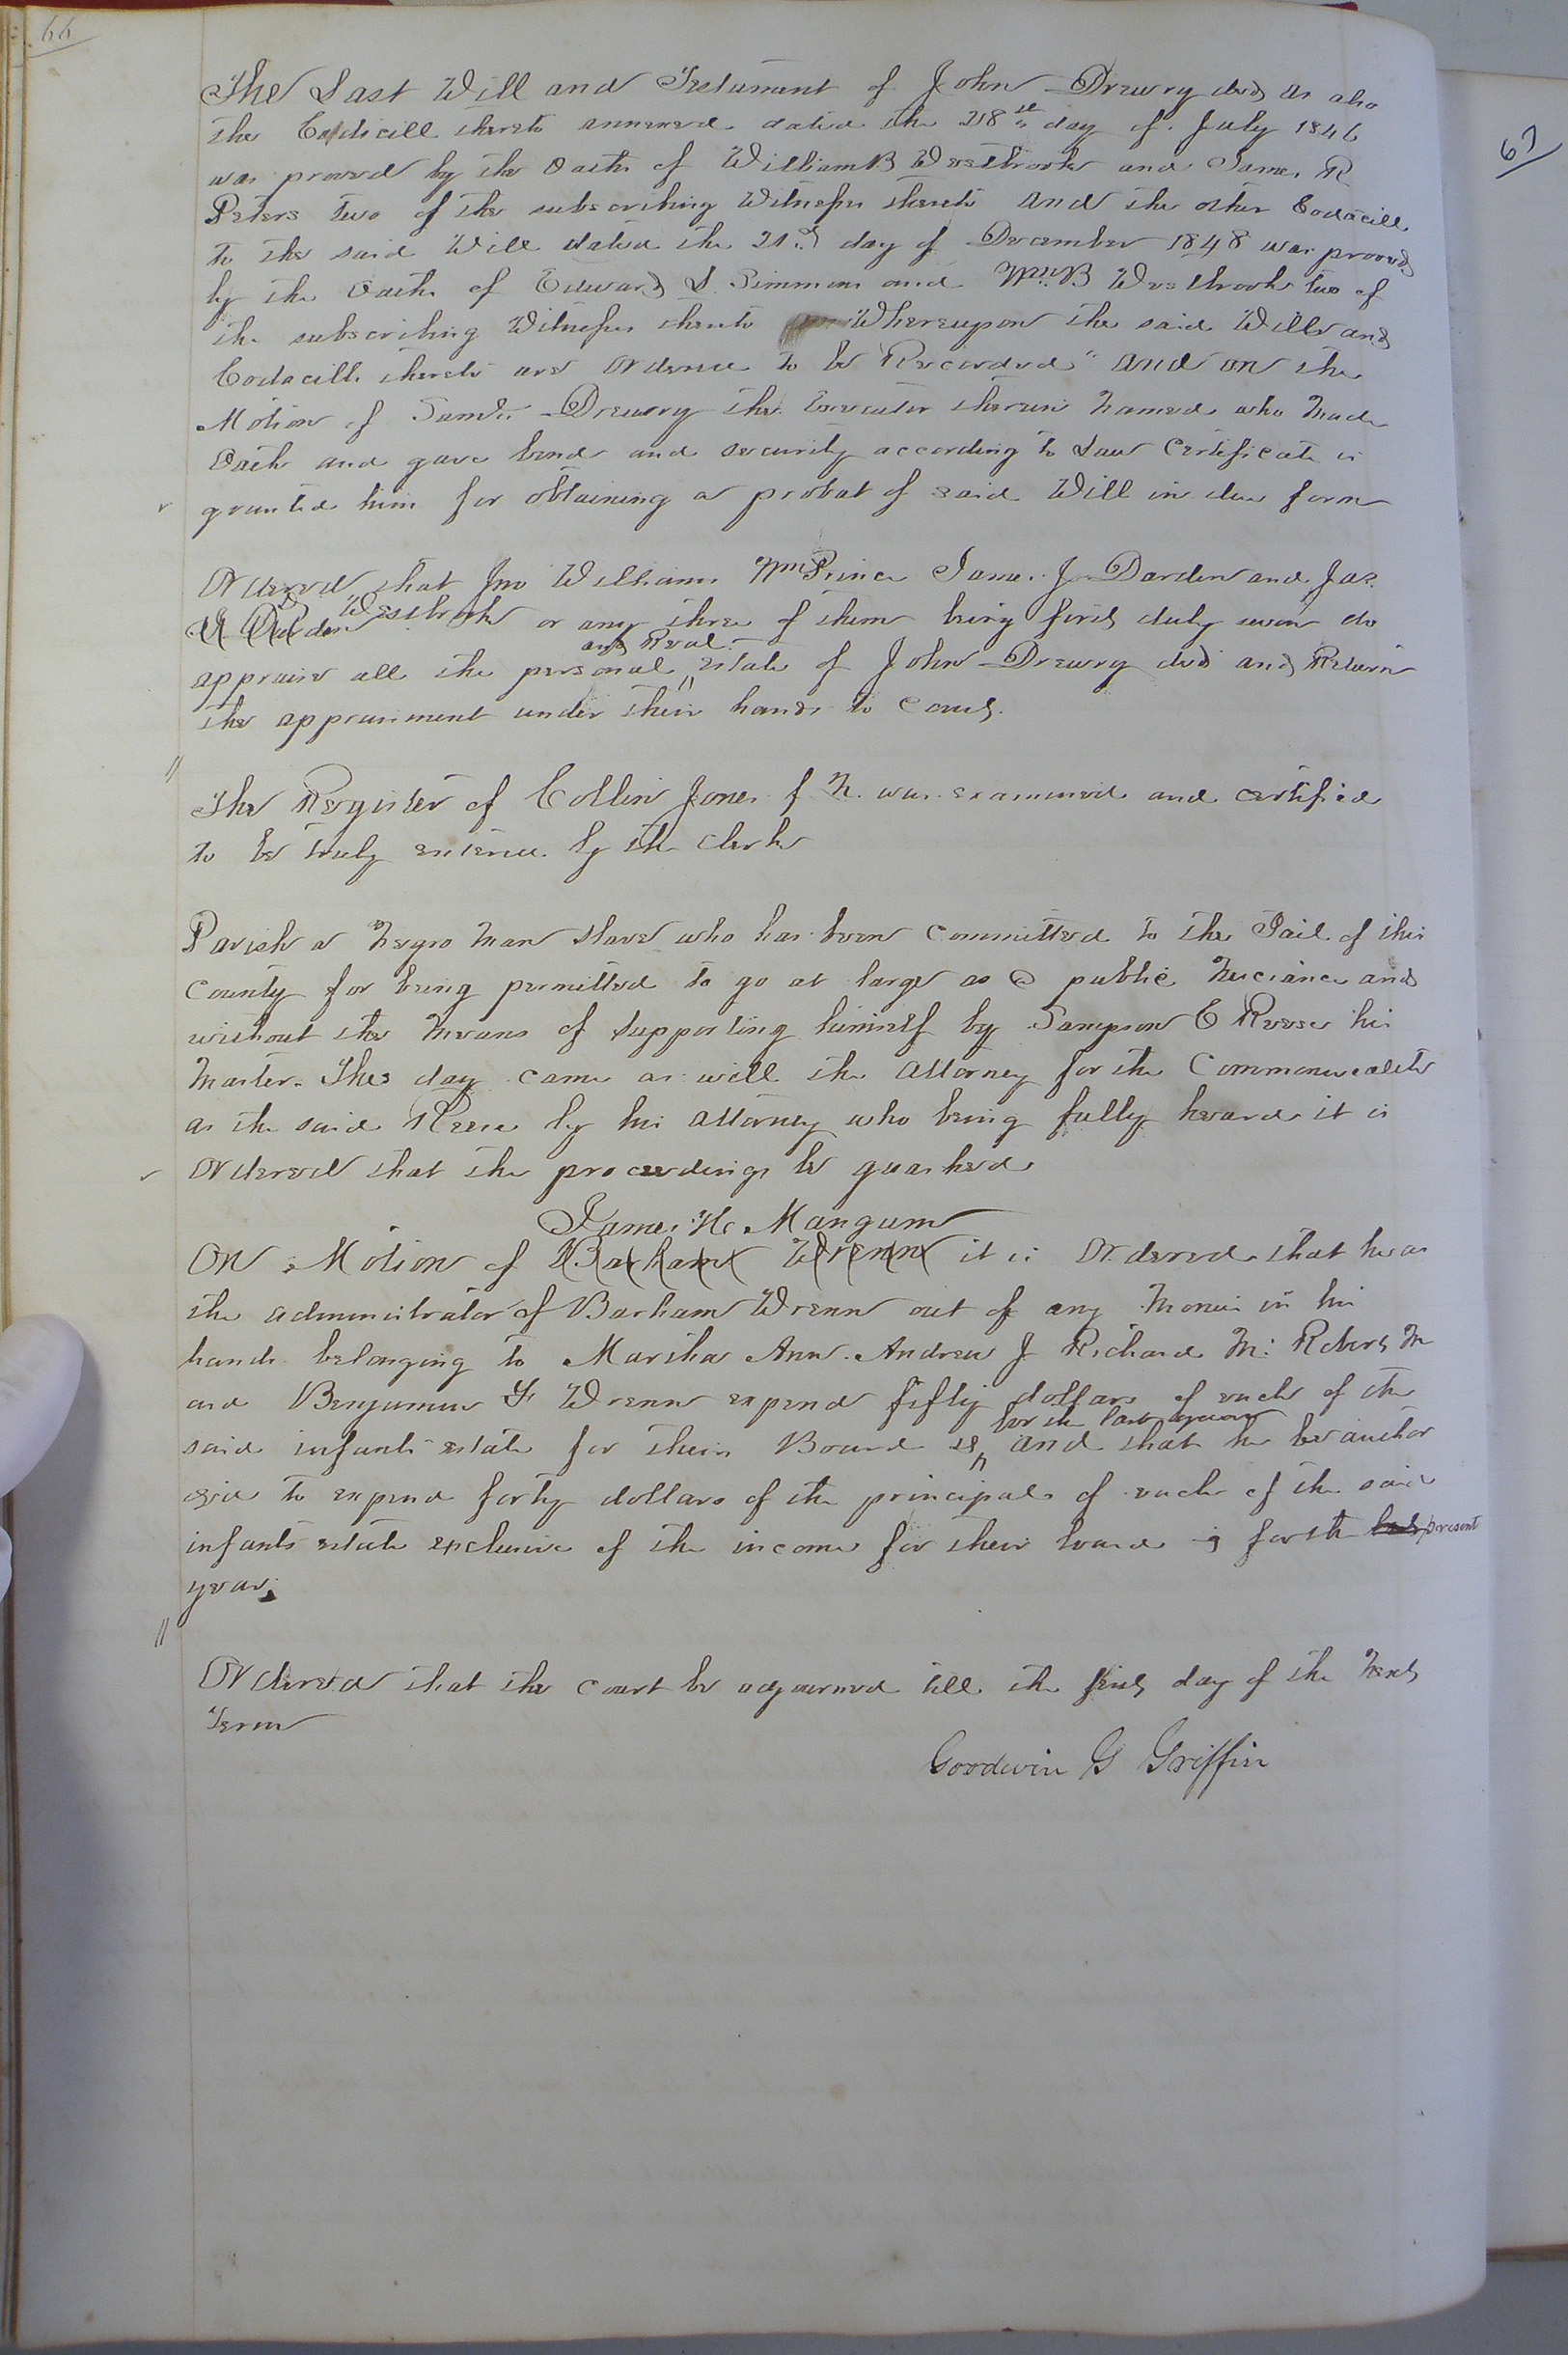 66
67
The Last Will and Testament of John Drewry decd as also
the Codicill thereto annexed dated the 28th day of July 1846
was proved by the oaths of William B Westbrook and James R
Peters two of the subscribing Witnesses thereto and the other Codacill
to the said Will dated the 21st day of December 1848 was proved
by the oaths of Edward S Simmons and Wm B Westbrook two of
the subscribing Witnesses thereto Whereupon the said Will and
Codacills thereto are Ordered to be Recorded" and on the
Motion of Saml Drewry the Executor therein named who made
Oath and gave bond and security according to Law Certificate is
granted him for obtaining a probat of said Will in due form
Ordered that Jno Williams Wm Prince James J Darden and Jas
Westbrook or any three of them being first duly sworn do
and Real
appraise all the personal estate of John Drewry decd and Return
the appraisment under their hands to Court.
The Register of Collin Jones f N. was examined and certified
to be truly entered by the Clerk
Parish a Negro man slave who has been committed to the Jail of this
County for being permitted to go at large as a public Nuciance and
without the means of supporting himself by Sampson C Reese his
Master. This day came as well the attorney for the Commonwealth
as the said Reese by his attorney who being fully heard it is
Ordered that the proceedings be quashed
James H. Mangum
On Motion of Barham Wrenn it is Ordered that he as
the administrator of Barham Wrenn out of any monies in his
hands belonging to Martha Ann Andrew J Richard M. Robert M
and Benjamin F Wrenn expend fifty dollars of each of the
for the last year
said infants estate for their Board &c and that he be author
ized to expend forty dollars of the principal of each of the said
infants estate exclusive of the income for their board &c for the last present
year.
Ordered that the court be adjourned till the first day of the next
Term
Goodwin G Griffin